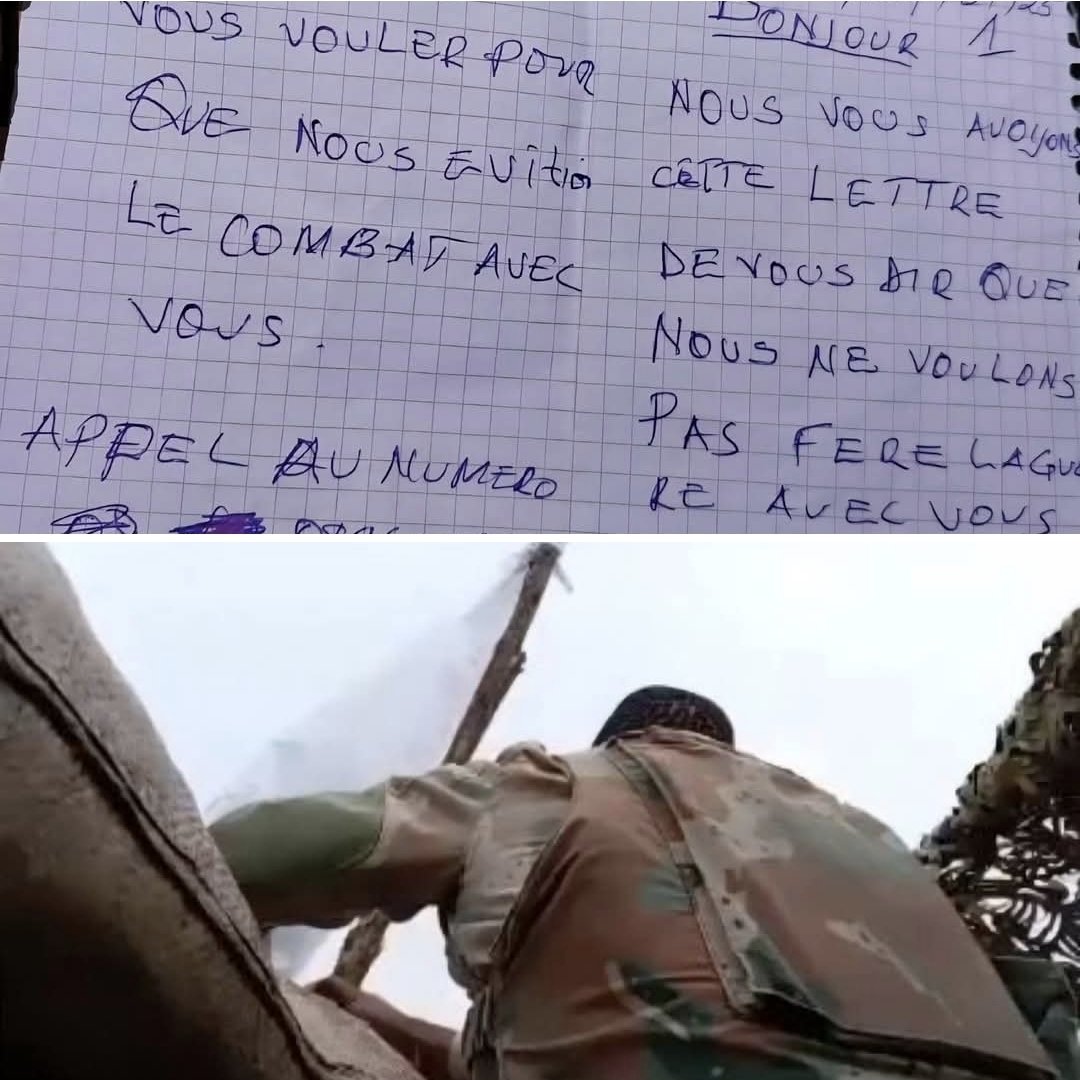 BONJOUR 1
NOUS VOUS AVOYONS
CETTE LETTRE
DE VOUS DIR QUE
NOUS NE VOULONS
PAS FERE LAGUE
RE AVEC VOUS
VOUS VOULER POUR
QUE NOUS EVITION
LE COMBAT AVEC
VOUS.
APPEL AU NUMERO